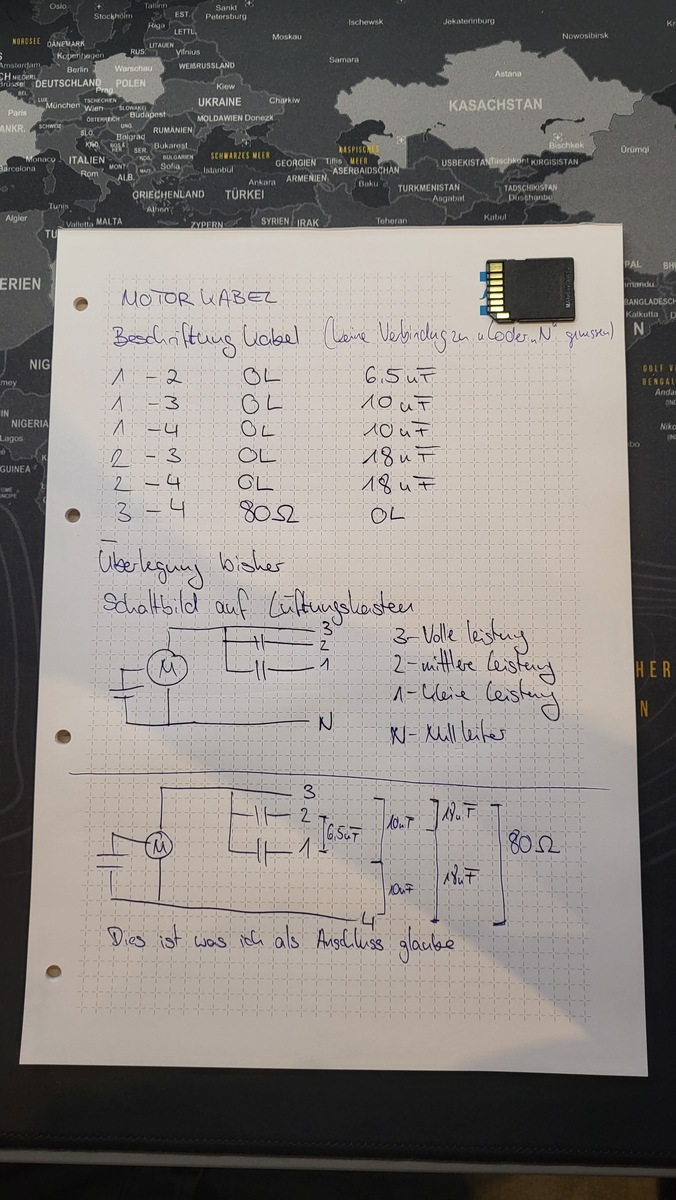 NORDSEE
DÄNEMARK
Oslo
Stockholm
Tallinn
EST.
Sankt
Petersburg
Riga
LETTL.
LITAUEN
Vilnius
Moskau
Ischewsk
Jekaterinburg
Nowosibirsk
Samara
Kopenhagen
RUS.
WEIßRUSSLAND
Berlin
Warschau
DEUTSCHLAND
POLEN
Astana
KASACHSTAN
Kiew
UKRAINE
Charkiw
MOLDAWIEN
Donezk
Paris
München
Wien
TSCHECHIEN
SLOWAKEI
Budapest
ÖSTERREICH
UNG.
RUMÄNIEN
Belgrad
Bukarest
SLO.
SER.
Monaco
Barcelona
ITALIEN
Rom
MONT.
ALB.
BULGARIEN
Sofia
SCHWARZES MEER
Istanbul
GEORGIEN
Tiflis
KASPISCHES
MEER
ASERBAIDSCHAN
ARMENIEN
Baku
Ankara
GRIECHENLAND
Athen
TÜRKEI
USBEKISTAN
Taschkent
KIRGISISTAN
Bischkek
Ürümqi
TURKMENISTAN
Asgabat
TADSCHIKISTAN
Duschanbe
Algier
Tunis
Valletta
MALTA
ZYPERN
SYRIEN
IRAK
Teheran
Kabul
MOTOR KABEL
Beschriftung Kabel (keine Verbindung zu "L" oder "N" gemessen)
1 - 2 OL 6.5uF
1 - 3 OL 10uF
1 - 4 OL 10uF
2 - 3 OL 18uF
2 - 4 OL 18uF
3 - 4 80Ω OL
Überlegung bisher
Schaltbild auf Lüftungskasten
3
2
1
M
N
3-Volle leistung
2-mittlere Leistung
1-kleine Leistung
N-Nullleiter
3
2
1
M
4
6,5uF
10uF
10uF
18uF
18uF
80Ω
Dies ist was ich als Anschluss glaube
ERIEN
NIGERIA
Lagos
GUINEA
PAL
BANGLADESC
Kalkutta
GOLF V
BENGAL
HER
N